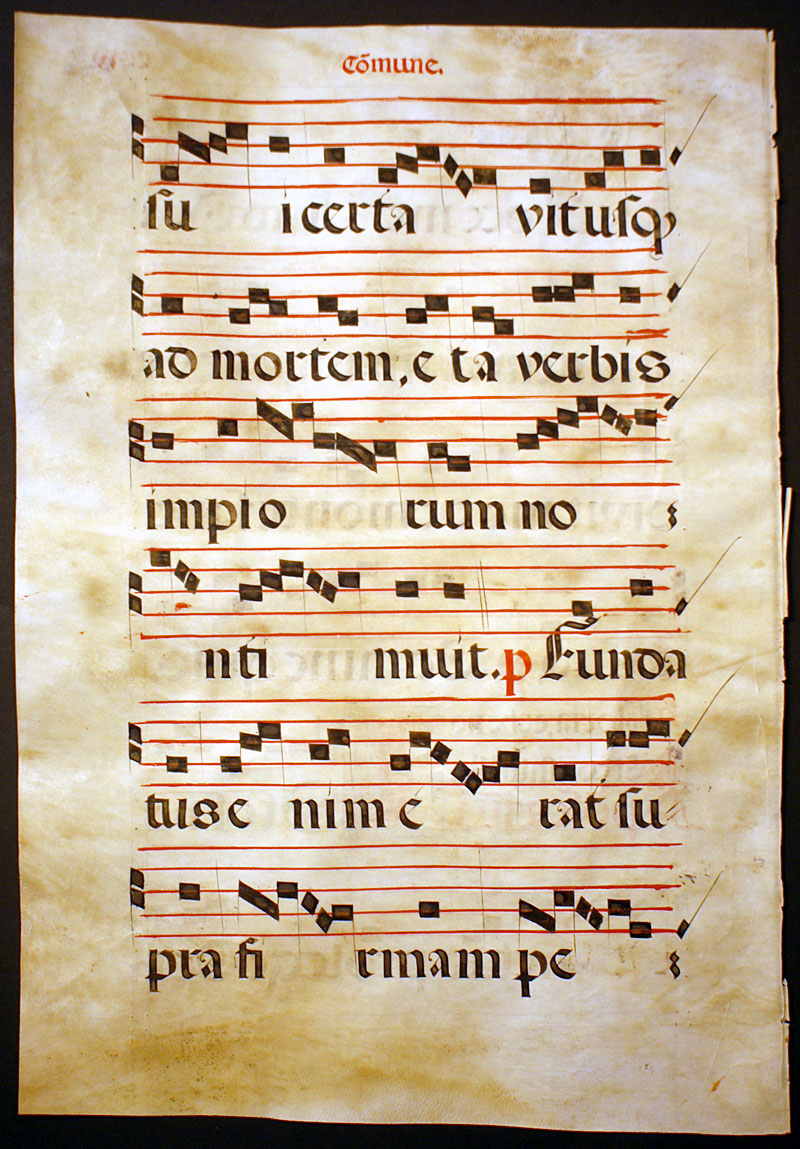 Cōmune.
ſu i certa vit uſq
ad mortem, e ta verbis
impio rum no
nti muit. p Funda
tus e nim e rat ſu
pra fi rmam pe